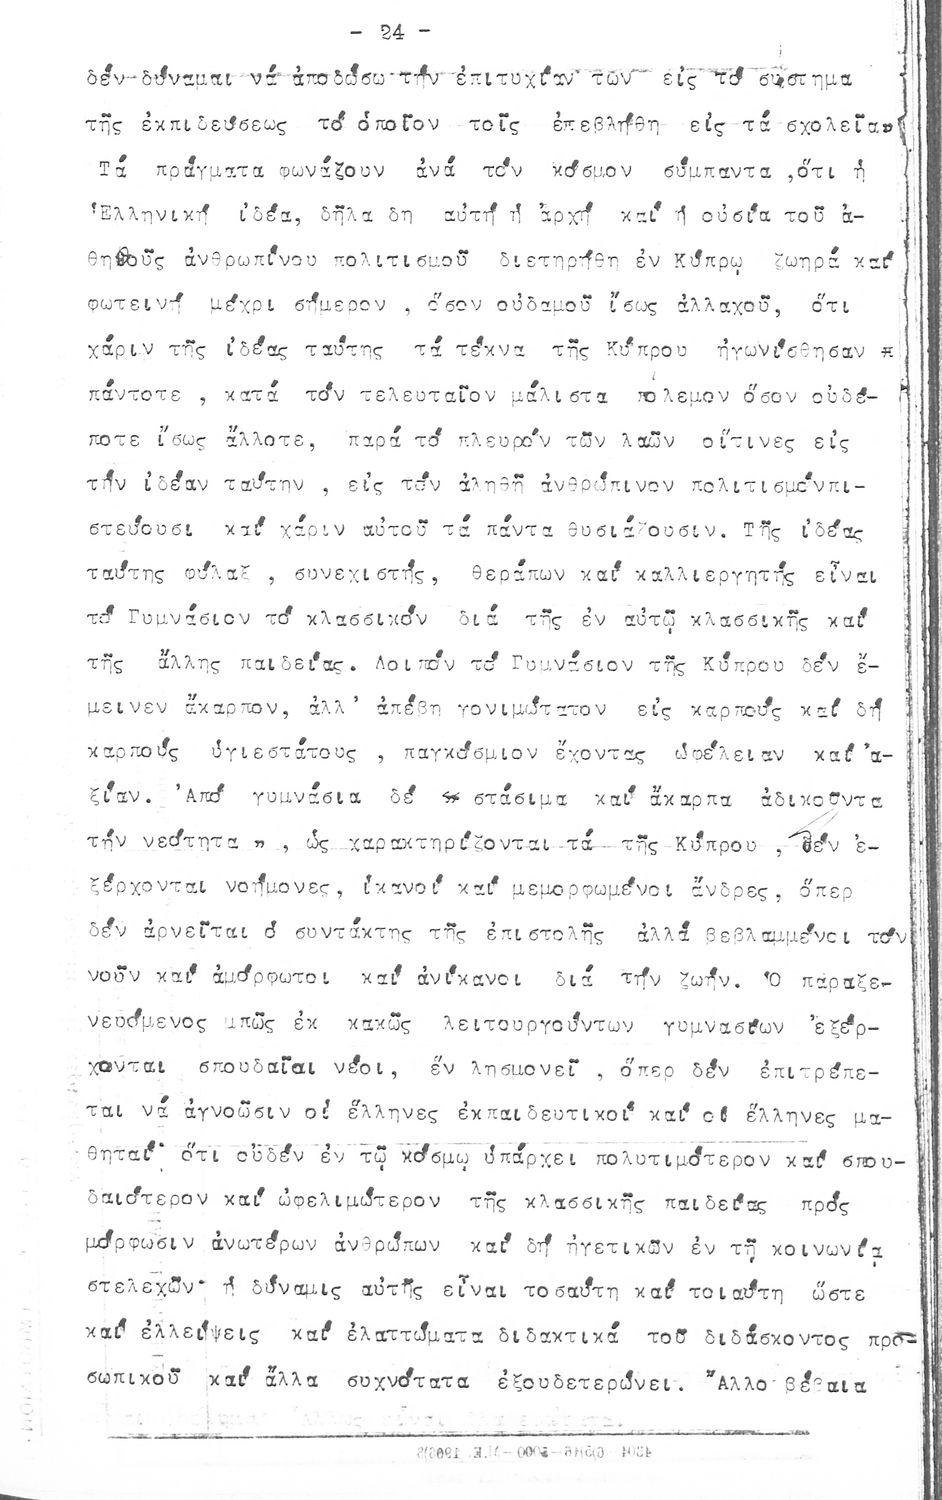 - 24 -
δέν δύναμαι νά ἀποδώσω τήν ἐπιτυχίαν των εἰς τό σύστημα
τῆς ἐκπιδεύσεως τό ὁποῖον τοῖς ἐπεβλήθη εἰς τά σχολεῖα»
Τά πράγματα φωνάζουν ἀνά τόν κόσμον σύμπαντα ,ὅτι ἡ
Ἑλληνική ἰδέα, δῆλα δη αὐτή ἡ ἀρχή καί ἡ οὐσία τοῦ ἀ-
θηθοῦς ἀνθρωπίνου πολιτισμοῦ διετηρήθη ἐν Κύπρῳ ζωηρά καί
φωτεινή μέχρι σήμερον , ὅσον οὐδαμοῦ ἴσως ἀλλαχοῦ, ὅτι
χάριν τῆς ἰδέας ταύτης τά τέκνα τῆς Κύπρου ἠγωνίσθησαν
πάντοτε , κατά τόν τελευταῖον μάλιστα πόλεμον ὅσον οὐδέ-
ποτε ἴσως ἄλλοτε, παρά τό πλευρόν τῶν λαῶν οἵτινες εἰς
τήν ἰδέαν ταύτην , εἰς τόν ἀληθῆ ἀνθρώπινον πολιτισμόνπι-
στεύουσι καί χάριν αὐτοῦ τά πάντα θυσιάζουσιν. Τῆς ἰδέας
ταύτης φύλαξ , συνεχιστής, θεράπων καί καλλιεργητής εἶναι
τό Γυμνάσιον τό κλασσικόν διά τῆς ἐν αὐτῷ κλασσικῆς καί
τῆς ἄλλης παιδείας. Λοιπόν τό Γυμνάσιον τῆς Κύπρου δέν ἔ-
μεινεν ἄκαρπον, ἀλλ' ἀπέβη γονιμώτατον εἰς καρπούς καί δή
καρπούς ὑγιεστάτους , παγκόσμιον ἔχοντας ὠφέλειαν καί ἀ-
ξίαν. Ἀπό γυμνάσια δέ « στάσιμα καί ἄκαρπα ἀδικοῦντα
τήν νεότητα » , ὡς χαρακτηρίζονται τά τῆς Κύπρου , δέν ἐ-
ξέρχονται νοήμονες, ἱκανοί καί μεμορφωμένοι ἄνδρες, ὅπερ
δέν ἀρνεῖται ὁ συντάκτης τῆς ἐπιστολῆς ἀλλά βεβλαμμένοι τόν
νοῦν καί ἀμόρφωτοι καί ἀνίκανοι διά τήν ζωήν. Ὁ παραξε-
νευόμενος μπῶς ἐκ κακῶς λειτουργούντων γυμνασίων ἐξέρ-
χονται σπουδαῖαι νέοι, ἕν λησμονεῖ , ὅπερ δέν ἐπιτρέπε-
ται νά ἀγνοῶσιν οἱ ἕλληνες ἐκπαιδευτικοί καί οἱ ἕλληνες μα-
θηταί· ὅτι οὐδέν ἐν τῷ κόσμῳ ὑπάρχει πολυτιμότερον καί σπου-
δαιότερον καί ὠφελιμώτερον τῆς κλασσικῆς παιδείας πρός
μόρφωσιν ἀνωτέρων ἀνθρώπων καί δή ἡγετικῶν ἐν τῇ κοινωνίᾳ
στελεχῶν· ἡ δύναμις αὐτῆς εἶναι τοσαύτη καί τοιαύτη ὥστε
καί ἐλλείψεις καί ἐλαττώματα διδακτικά τοῦ διδάσκοντος προ-
σωπικοῦ καί ἄλλα συχνότατα ἐξουδετερώνει. Ἄλλο βέβαια